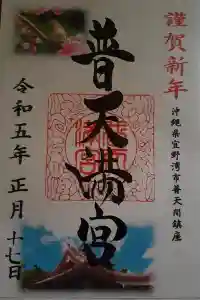 謹賀新年
沖縄県宜野湾市普天間鎮座
普天満宮
令和五年 正月 十七日